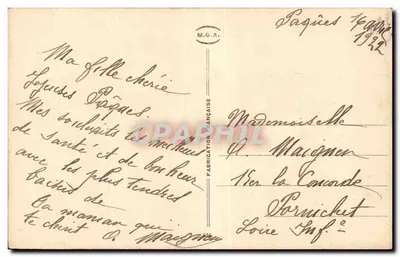 Pâques 16 avril
1922
M.G.A.
Ma fille chérie
Joyeuses Pâques.
Mes souhaits les meilleurs
de santé et de bonheur
avec les plus tendres
baisers de
ta maman qui
te chérit O. Maignen
FABRICATION FRANÇAISE
Mademoiselle
O. Maignen
la Concorde
Pornichet
Loire Infre